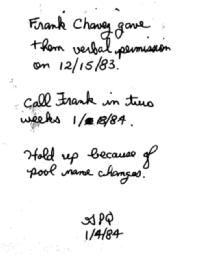 Frank Chavez gave
them verbal permission
on 12/15/83.
Call Frank in two
weeks 1/18/84.
Hold up because of
pool name changes.
1/4/84